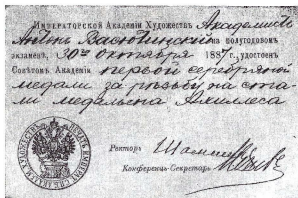 ИМПЕРАТОРСКОЙ Академіи Художествъ Академистъ
Антонъ Васютинскій на полугодовомъ
экзаменѣ, 30го октября 1887 г., удостоенъ
Совѣтомъ Академіи первой серебряной
медали за рѣзьбу на ста-
ли медальона Ахиллеса
Ректоръ
Конференцъ-Секретарь